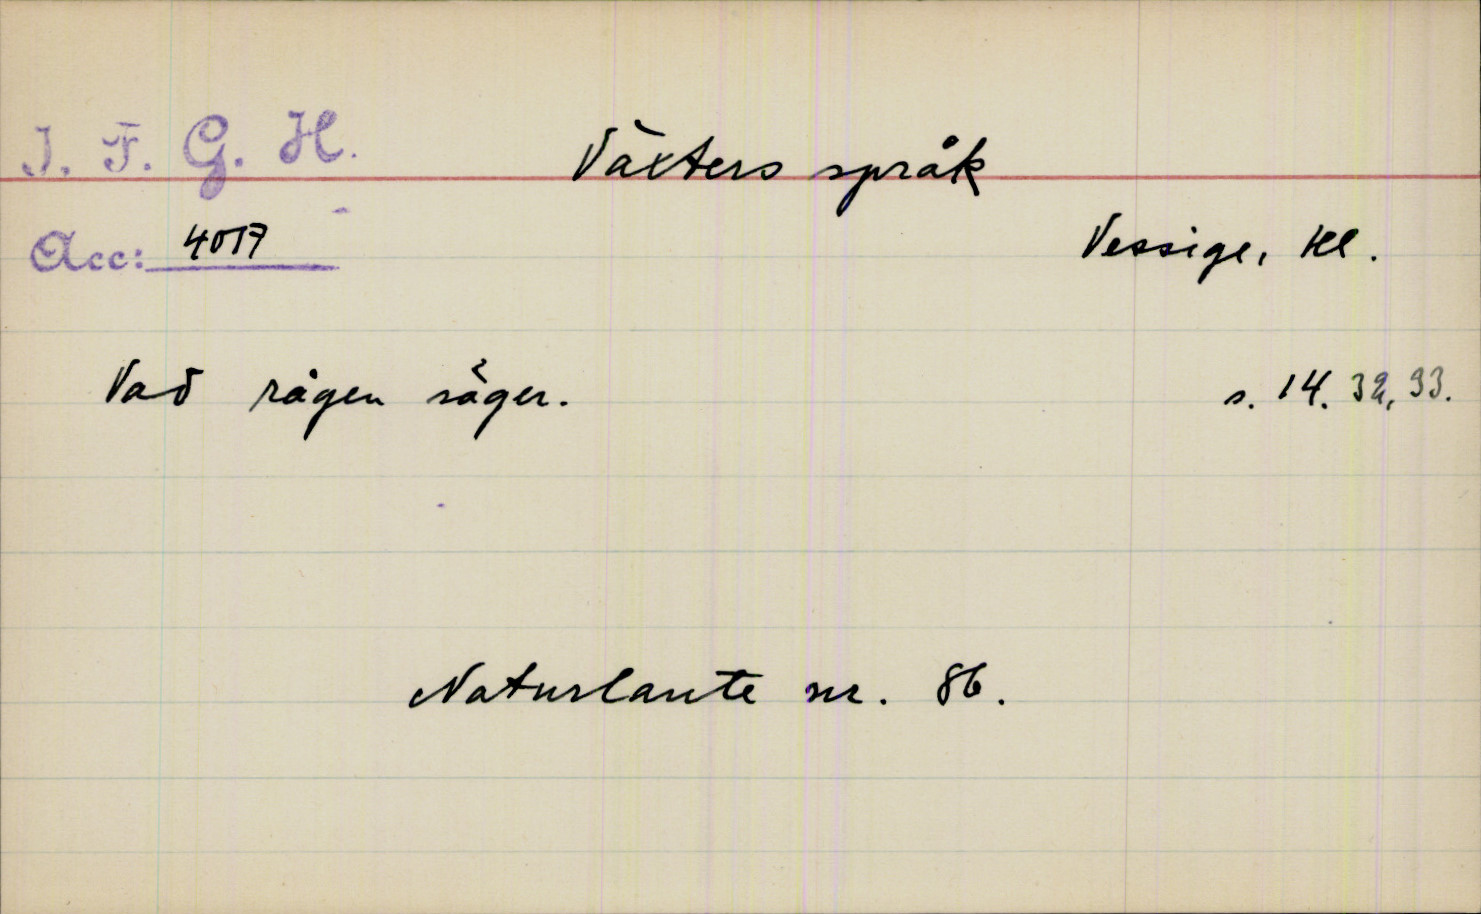 I. F. G. H.
Växters språk
Acc: 4017
Vessige, Hl.
Vad rågen säger.
s. 14. 32, 33.
Naturlaute nr. 86.